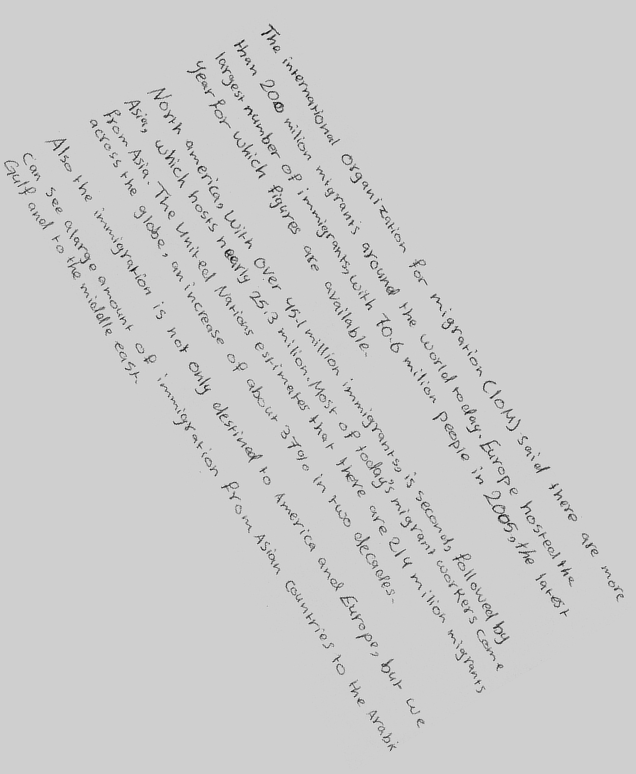 The international organization for migration (IOM) said there are more
than 200 million migrants around the world today. Europe hosted the
largest number of immigrants, with 70.6 million people in 2005, the latest
year for which figures are available.
North america, with over 45.1 million immigrants, is second, followed by
Asia, which hosts nearly 25.3 million. Most of today's migrant workers come
from Asia. The United Nations estimates that there are 214 million migrants
across the globe, an increase of about 37% in two decades.
Also the immigration is not only destined to America and Europe, but we
can see alarge amount of immigration from Asian countries to the Arabic
Gulf and to the middle east.